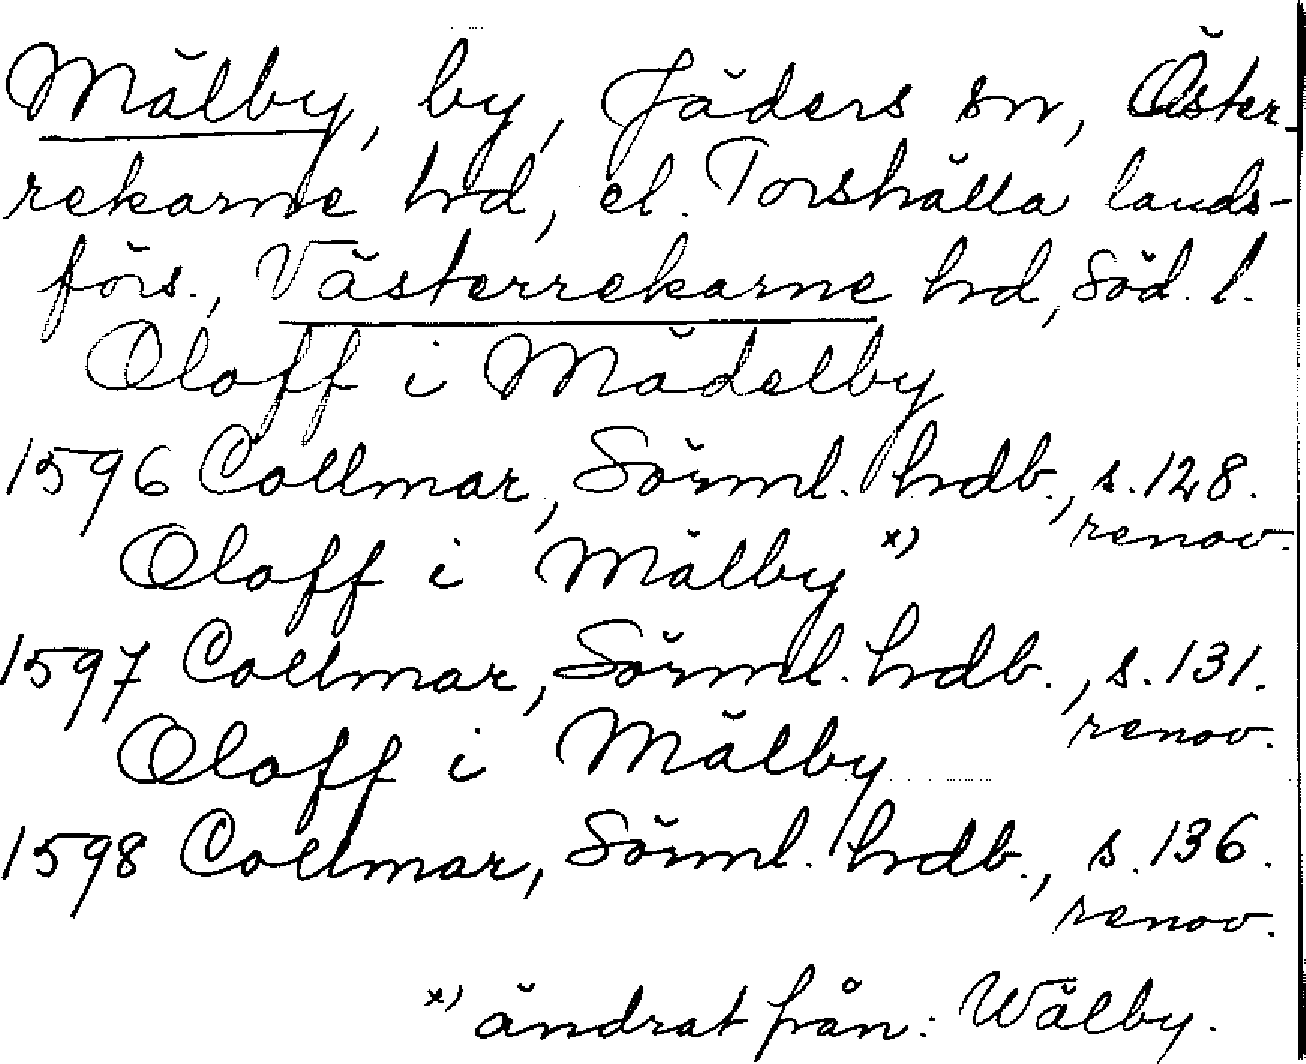 Mälby, by, Jäders sn, Öster-
rekarne hrd, el. Torshälla lands-
förs., Västerrekarne hrd, Söd. l.
Oloff i Mädelby
1596 Collmar, Sörml. hrdb., s. 128.
renov.
Oloff i Mälby x)
1597 Collmar, Sörml. hrdb., s. 131.
renov.
Oloff i Mälby
1598 Collmar, Sörml. hrdb., s. 136.
renov.
x) ändrat från: Wälby.